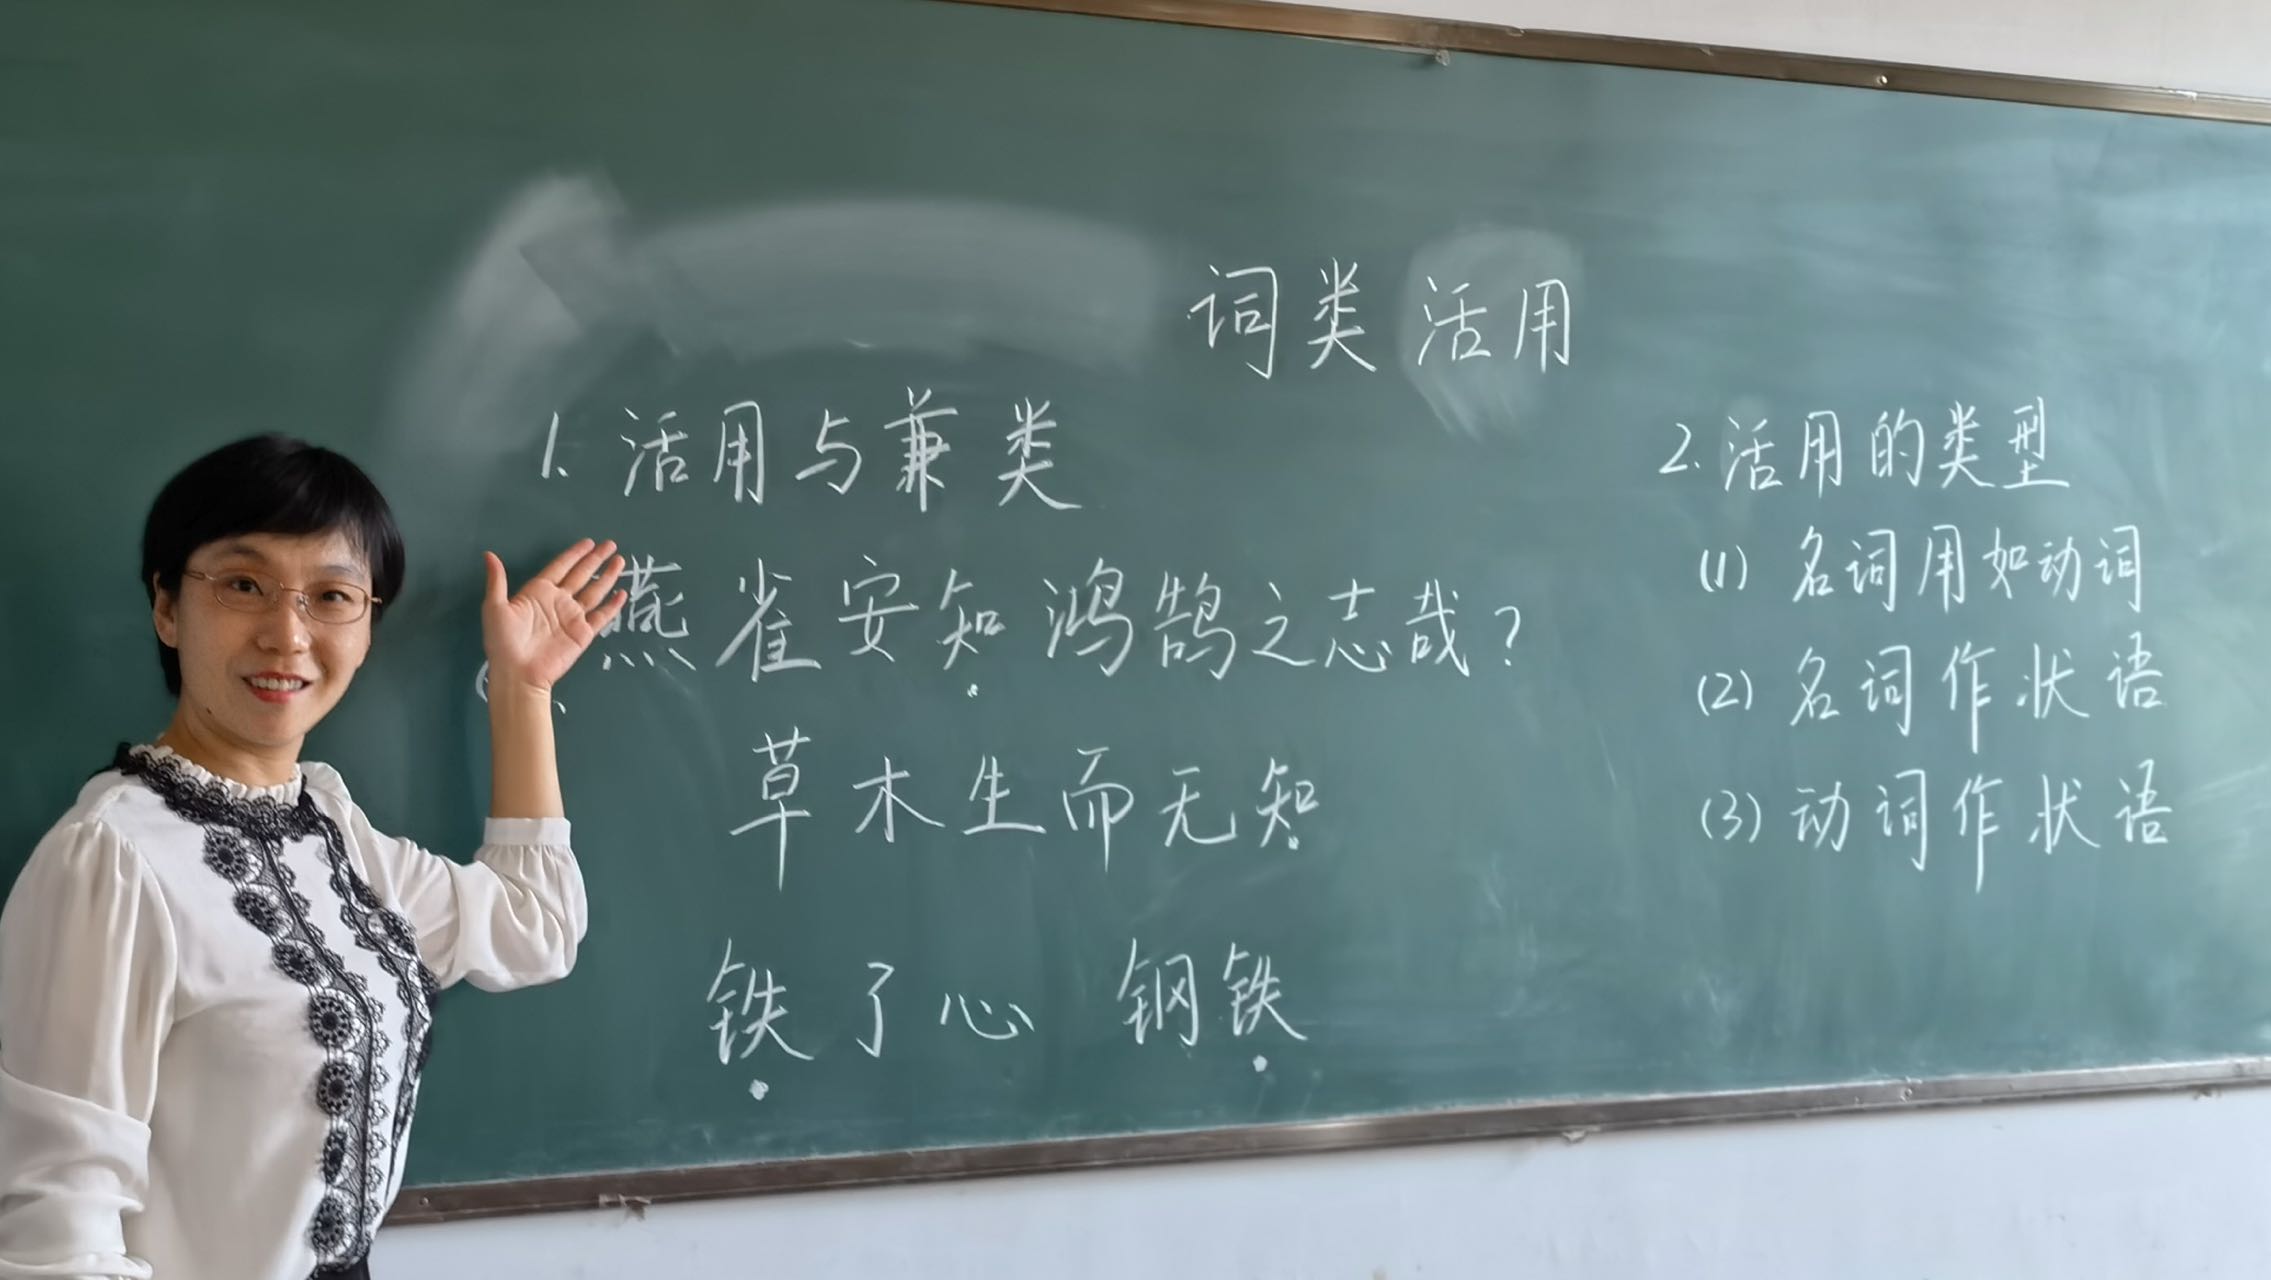 词类活用
1. 活用与兼类
燕雀安知鸿鹄之志哉?
草木生而无知
铁了心 钢铁
2. 活用的类型
(1) 名词用如动词
(2) 名词作状语
(3) 动词作状语